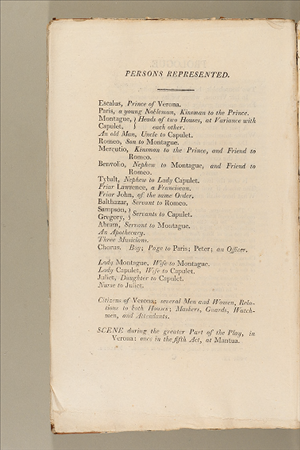 PERSONS REPRESENTED.
Escalus, Prince of Verona.
Paris, a young Nobleman, Kinsman to the Prince.
Montague, } Heads of two Houses, at Variance with
Capulet, } each other.
An old Man, Uncle to Capulet.
Romeo, Son to Montague.
Mercutio, Kinsman to the Prince, and Friend to
Romeo.
Benvolio, Nephew to Montague, and Friend to
Romeo.
Tybalt, Nephew to Lady Capulet.
Friar Lawrence, a Franciscan.
Friar John, of the same Order.
Balthazar, Servant to Romeo.
Sampson, } Servants to Capulet.
Gregory, }
Abram, Servant to Montague.
An Apothecary.
Three Musicians.
Chorus. Boy; Page to Paris; Peter; an Officer.
Lady Montague, Wife to Montague.
Lady Capulet, Wife to Capulet.
Juliet, Daughter to Capulet.
Nurse to Juliet.
Citizens of Verona; several Men and Women, Rela-
tions to both Houses; Maskers, Guards, Watch-
men, and Attendants.
SCENE during the greater Part of the Play, in
Verona: once in the fifth Act, at Mantua.